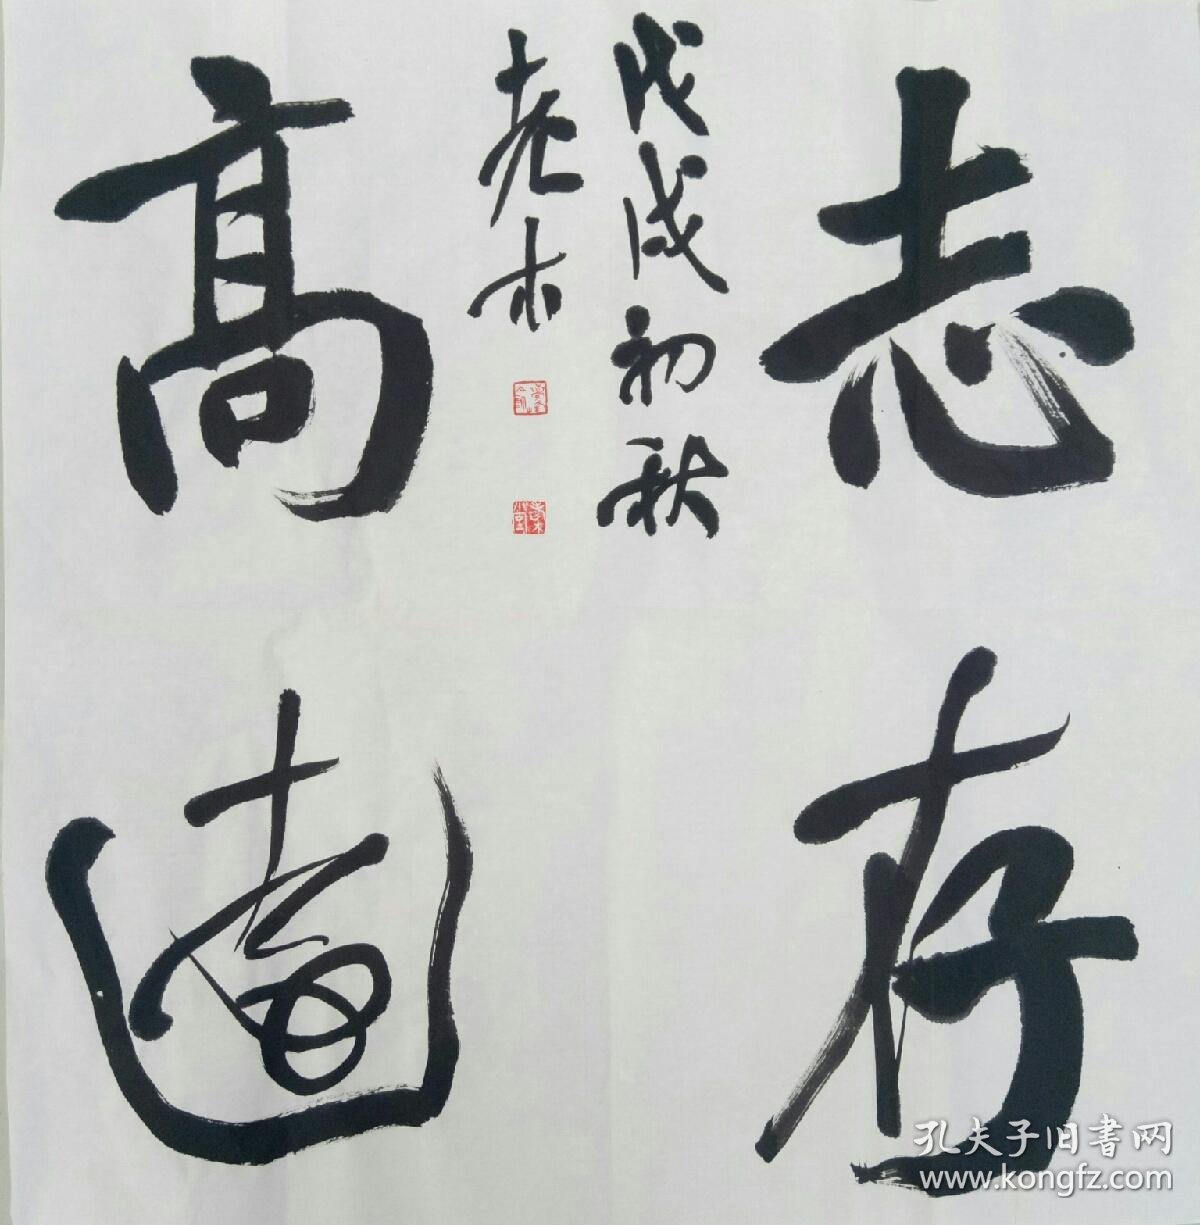 志存
高遠
戊戌初秋
老木
孔夫子旧書网
www.kongfz.com